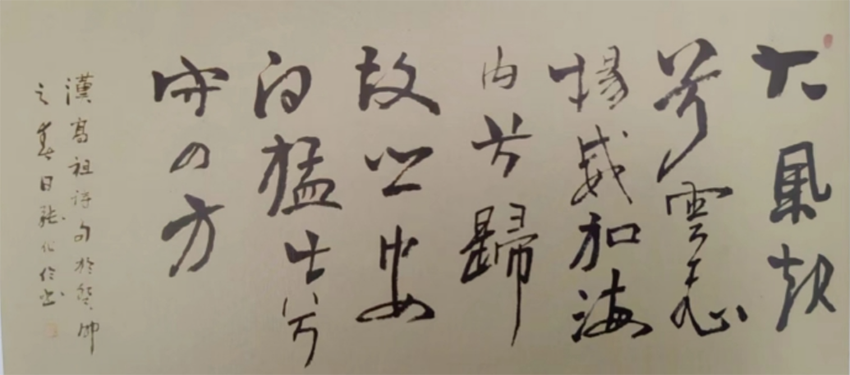 大風起
兮雲飛
揚威加海
内兮歸
故鄉安
得猛士兮
守四方
漢高祖詩句於癸卯
之春日張